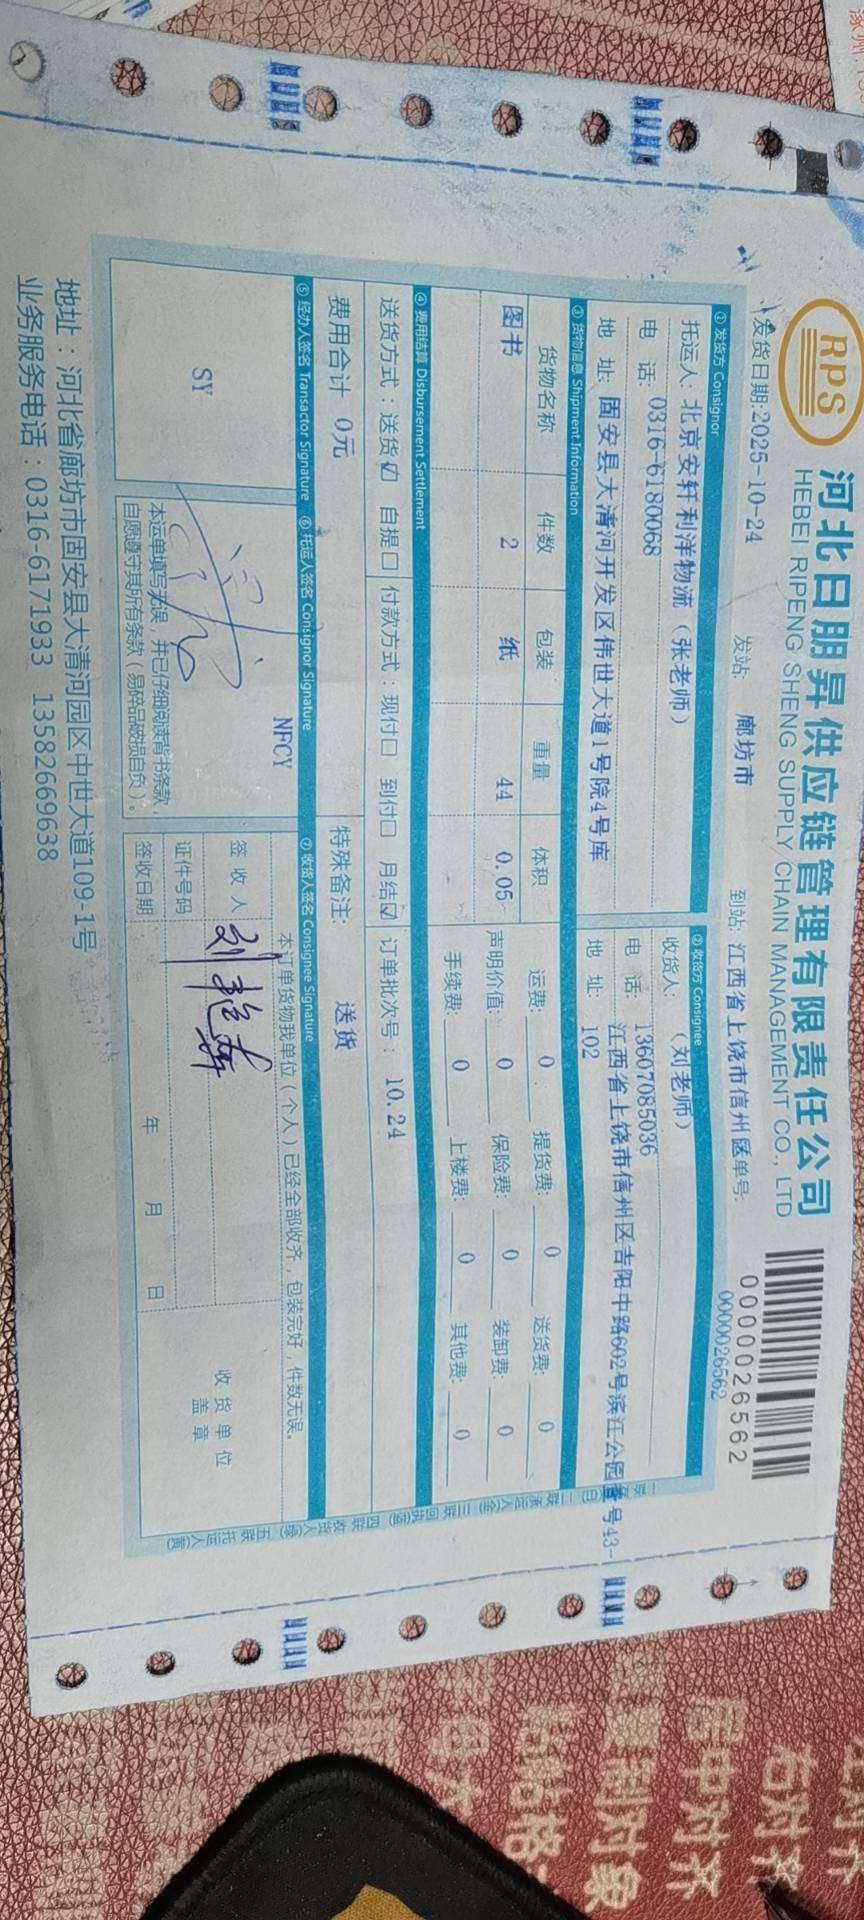 RPS
河北日朋昇供应链管理有限责任公司
HEBEI RIPENG SHENG SUPPLY CHAIN MANAGEMENT CO., LTD
0000026562
发货日期:2025-10-24 发站: 廊坊市 到站: 江西省上饶市信州区 单号: 0000026562
① 发货方 Consignor ② 收货方 Consignee
托运人: 北京安轩利洋物流（张老师） 收货人: （刘老师）
电 话: 0316-6180068 电 话: 13607085036
地 址: 固安县大清河开发区伟世大道1号院4号库 地 址: 江西省上饶市信州区吉阳中路602号滨江公园壹号43-
102
③ 货物信息 Shipment Information
货物名称 件数 包装 重量 体积 运费: 0 提货费: 0 送货费: 0
图书 2 纸 44 0.05 声明价值: 0 保险费: 0 装卸费: 0
手续费: 0 上楼费: 0 其他费: 0
④ 费用结算 Disbursement Settlement
送货方式：送货☑ 自提☐ 付款方式：现付☐ 到付☐ 月结☑ 订单批次号： 10.24
费用合计 0元 特殊备注: 送货
⑤ 经办人签名 Transactor Signature ⑥ 托运人签名 Consignor Signature ⑦ 收货人签名 Consignee Signature
NFCY 本订单货物我单位（个人）已经全部收齐，包装完好，件数无误。
SY
签 收 人 收货单位
证件号码 盖章
签收日期 年 月 日
本运单填写无误，并已仔细阅读背书条款，
自愿遵守其所有条款（易碎品破损自负）。
地址：河北省廊坊市固安县大清河园区中世大道109-1号
业务服务电话：0316-6171933 13582669638
二联承运人(金) 三联回执(蓝) 四联收货人(绿) 五联托运人(黄)
右对齐
居中对齐